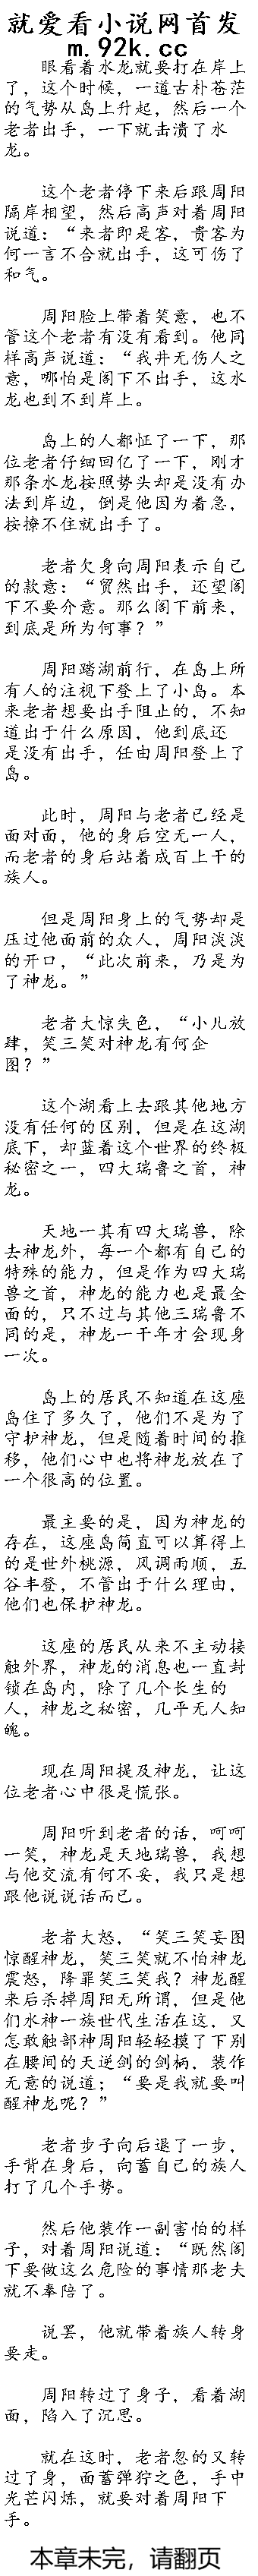 就爱看小说网首发
m.92k.cc
眼看着水龙就要打在岸上
了，这个时候，一道古朴苍茫
的气势从岛上升起，然后一个
老者出手，一下就击溃了水
龙。
这个老者停下来后跟周阳
隔岸相望，然后高声对着周阳
说道：“来者即是客，贵客为
何一言不合就出手，这可伤了
和气。
周阳脸上带着笑意，也不
管这个老者有没有看到。他同
样高声说道：“我并无伤人之
意，哪怕是阁下不出手，这水
龙也到不到岸上。
岛上的人都怔了一下，那
位老者仔细回亿了一下，刚才
那条水龙按照势头却是没有办
法到岸边，倒是他因为着急，
按撩不住就出手了。
老者欠身向周阳表示自己
的款意：“贸然出手，还望阁
下不要介意。那么阁下前来，
到底是所为何事？”
周阳踏湖前行，在岛上所
有人的注视下登上了小岛。本
来老者想要出手阻止的，不知
道出于什么原因，他到底还
是没有出手，任由周阳登上了
岛。
此时，周阳与老者已经是
面对面，他的身后空无一人，
而老者的身后站着成百上干的
族人。
但是周阳身上的气势却是
压过他面前的众人，周阳淡淡
的开口，“此次前来，乃是为
了神龙。”
老者大惊失色，“小儿放
肆，笑三笑对神龙有何企
图？”
这个湖看上去跟其他地方
没有任何的区别，但是在这湖
底下，却蓝着这个世界的终极
秘密之一，四大瑞鲁之首，神
龙。
天地一其有四大瑞兽，除
去神龙外，每一个都有自己的
特殊的能力，但是作为四大瑞
兽之首，神龙的能力也是最全
面的，只不过与其他三瑞鲁不
同的是，神龙一干年才会现身
一次。
岛上的居民不知道在这座
岛住了多久了，他们不是为了
守护神龙，但是随着时间的推
移，他们心中也将神龙放在了
一个很高的位置。
最主要的是，因为神龙的
存在，这座岛简直可以算得上
的是世外桃源，风调雨顺，五
谷丰登，不管出于什么理由，
他们也保护神龙。
这座的居民从来不主动接
触外界，神龙的消息也一直封
锁在岛内，除了几个长生的
人，神龙之秘密，几乎无人知
魄。
现在周阳提及神龙，让这
位老者心中很是慌张。
周阳听到老者的话，呵呵
一笑，神龙是天地瑞兽，我想
与他交流有何不妥，我只是想
跟他说说话而已。
老者大怒，“笑三笑妄图
惊醒神龙，笑三笑就不怕神龙
震怒，降罪笑三笑我？神龙醒
来后杀掉周阳无所谓，但是他
们水神一族世代生活在这，又
怎敢触部神周阳轻轻摸了下别
在腰间的天逆剑的剑柄，装作
无意的说道；“要是我就要叫
醒神龙呢？”
老者步子向后退了一步，
手背在身后，向蓄自己的族人
打了几个手势。
然后他装作一副害怕的样
子，对着周阳说道：“既然阁
下要做这么危险的事情那老夫
就不奉陪了。
说罢，他就带着族人转身
要走。
周阳转过了身子，看着湖
面，陷入了沉思。
就在这时，老者忽的又转
过了身，面蓄弹狞之色，手中
光芒闪烁，就要对着周阳下
手。
本章未完，请翻页